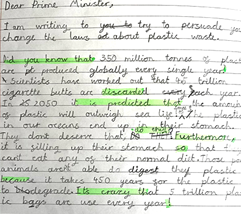 Dear Prime Minister,
I am writing to you to try to persuade you
change the laws about plastic waste.
Did you know that 350 million tonnes of plast
are produced globally every single year!
Scientists have worked out that 4.5 trillion
cigarette butts are discarded every year.
In 2050 it is predicted that the amoun
of plastic will outweigh sea life, the plastic
in our oceans end up in their stomach.
They dont deserve that, do they? Furthermore,
it is silling up their stomach so that
cant eat any of their normal diet. Those po
animals aren't able to digest they plastic
because it takes 450 years for the plastic
to biodegrade. It's crazy that 5 trillion plas
ic bags are use every year!